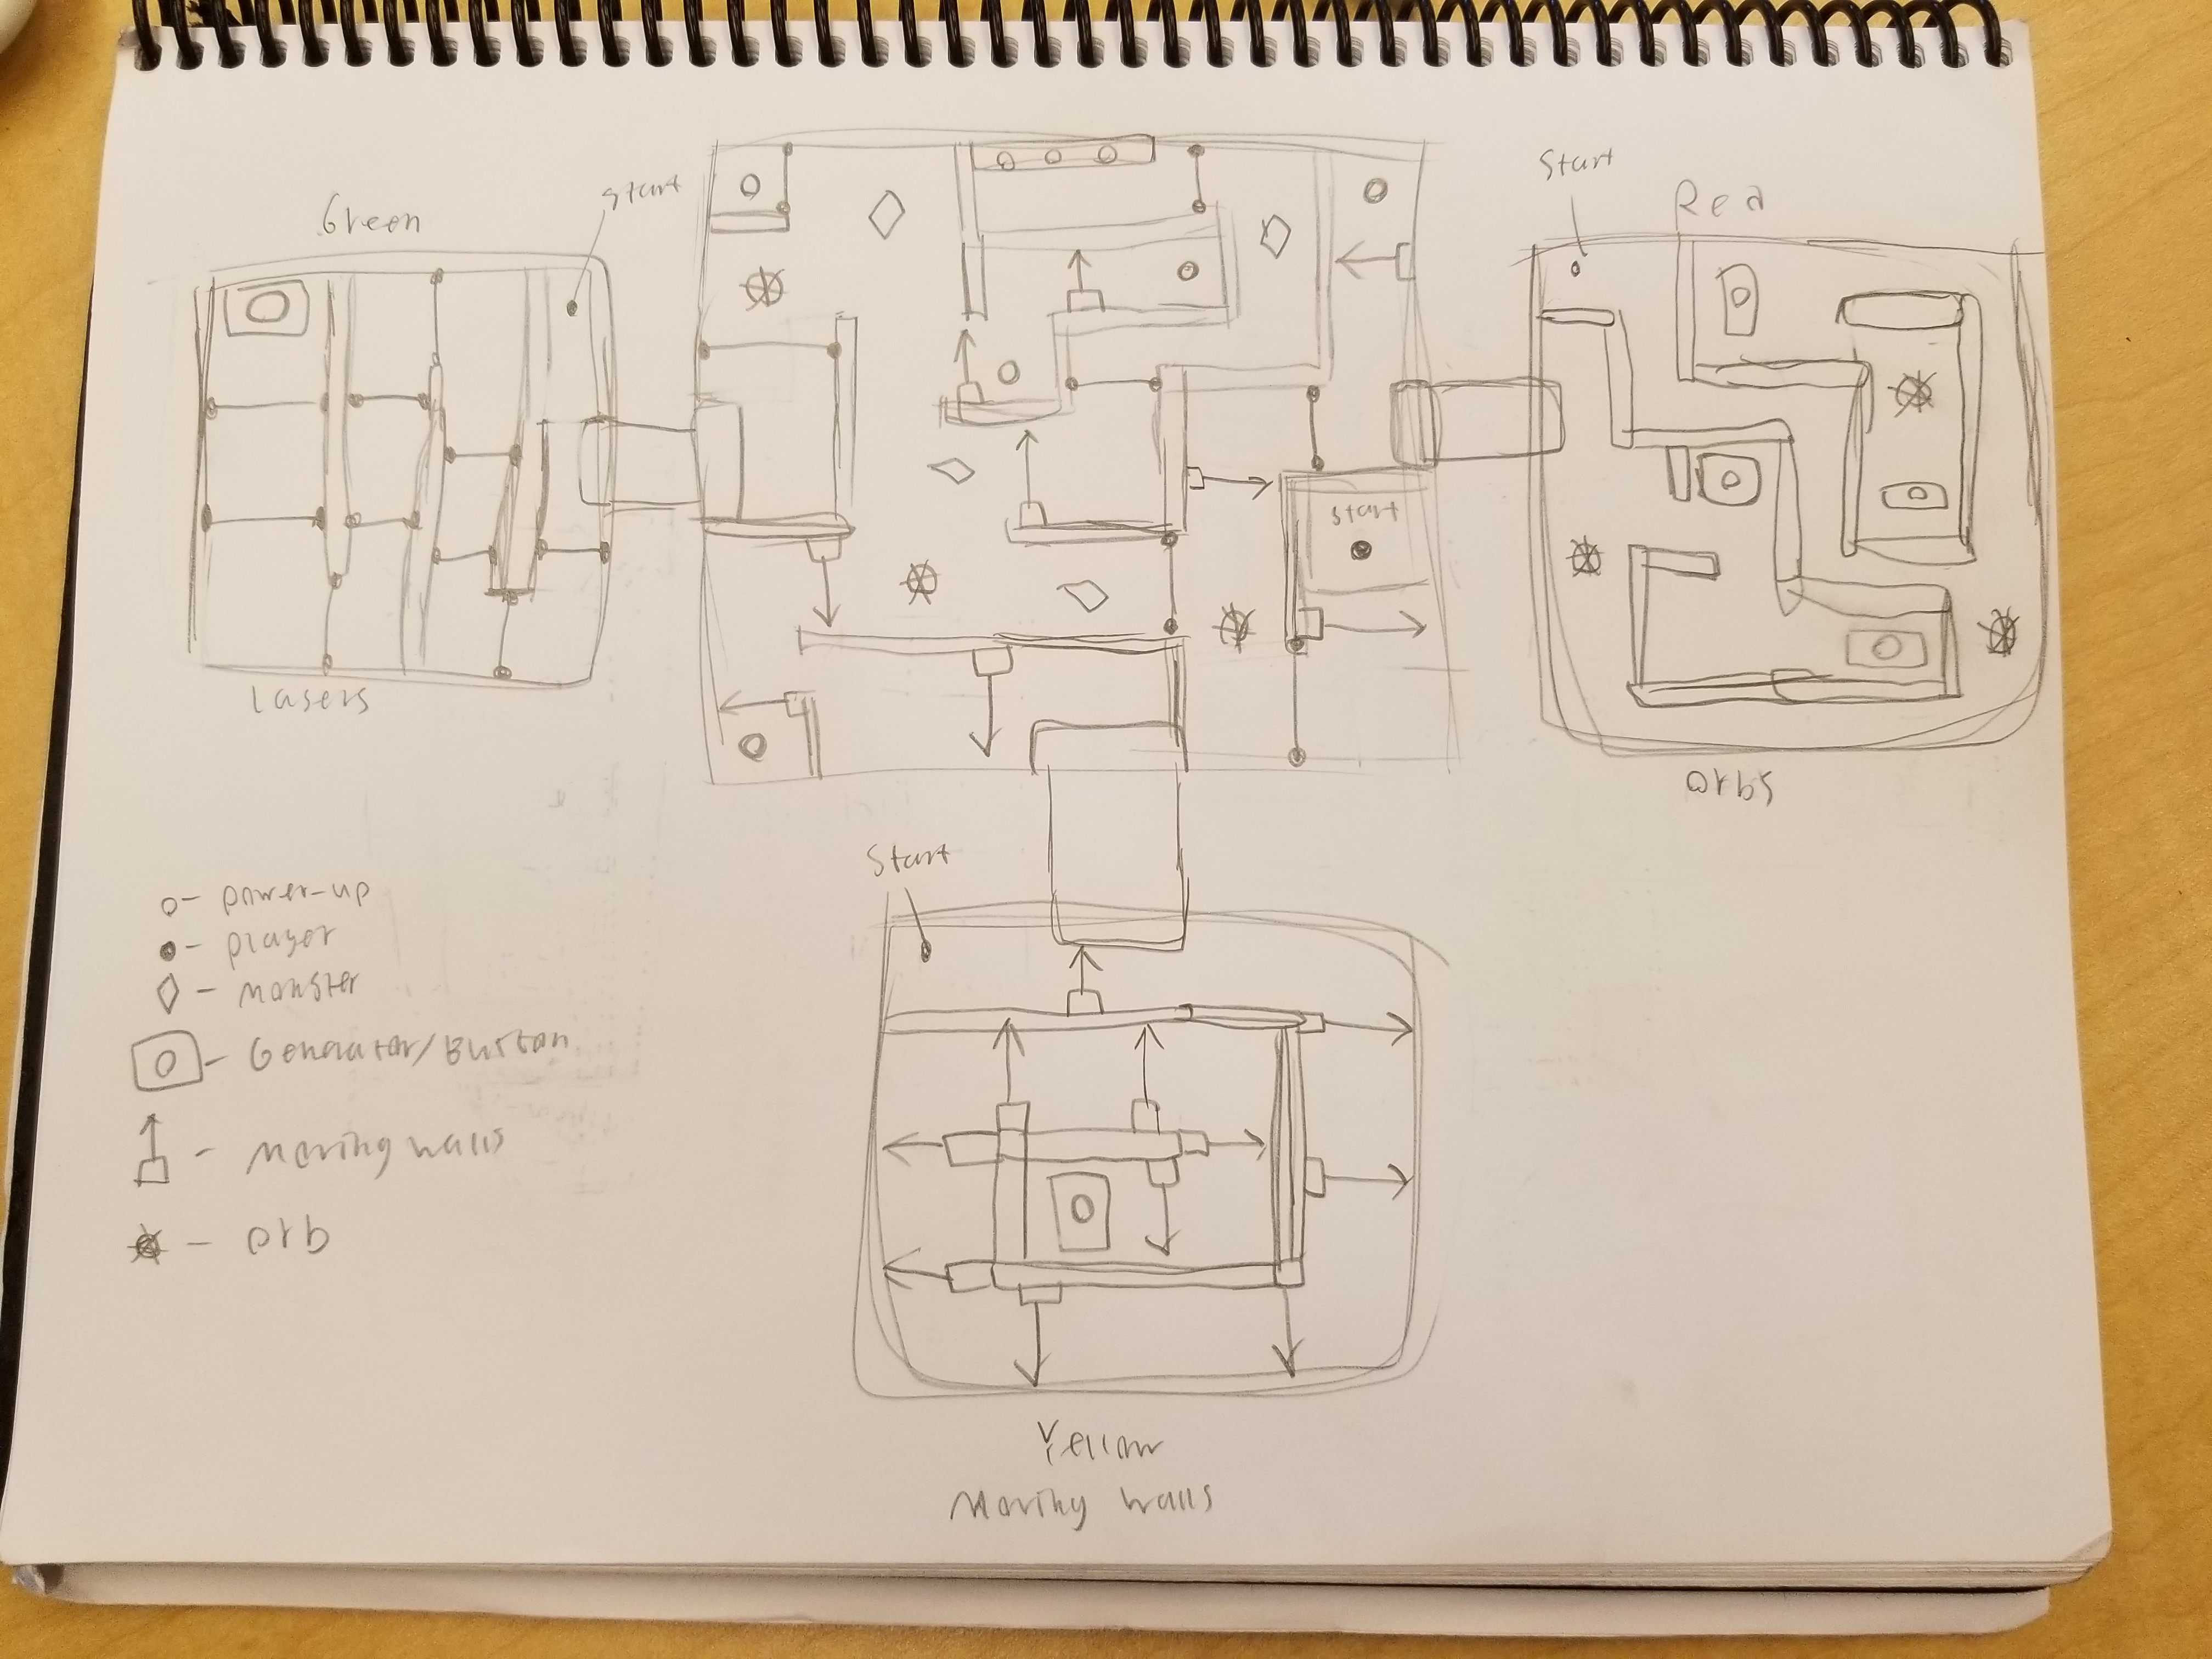 Start
Red
start
Green
start
Lasers
orbs
Start
o- power-up
- player
- monster
- Generator/Button
- Moving walls
- orb
Yellow
Moving walls